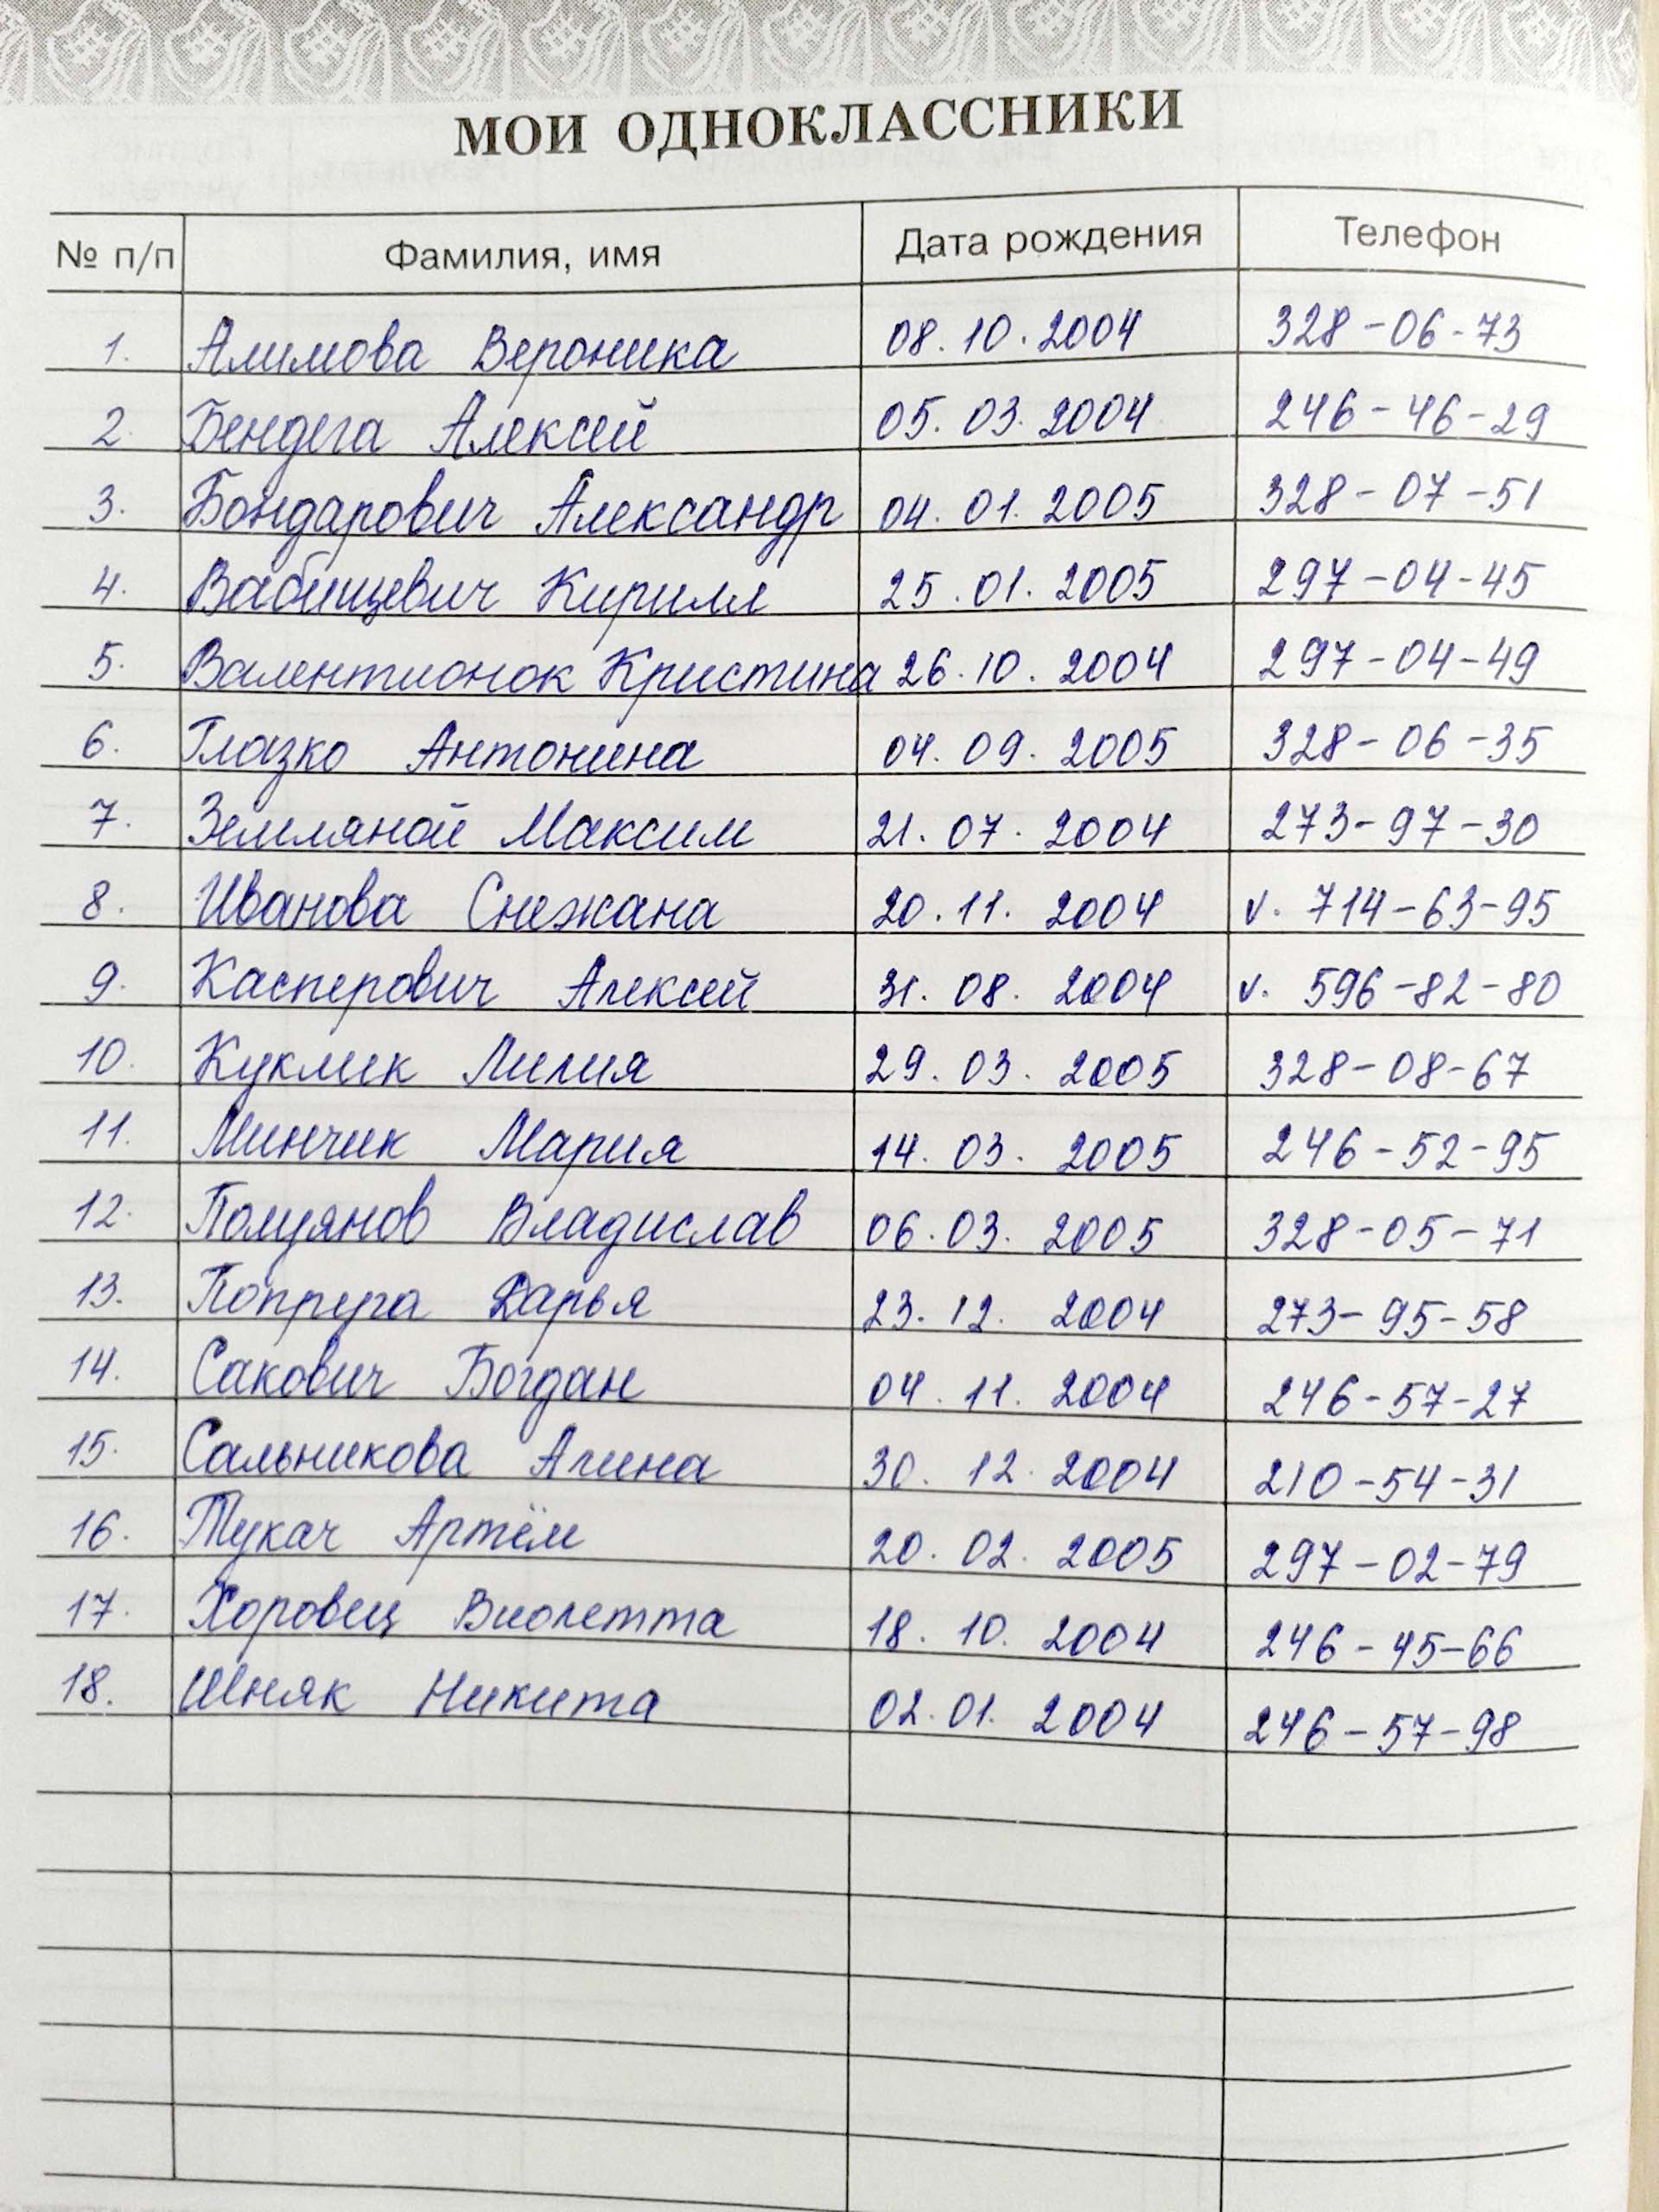 МОИ ОДНОКЛАССНИКИ
№ п/п Фамилия, имя Дата рождения Телефон
1. Алимова Вероника 08.10.2004 328-06-73
2. Бендега Алексей 05.03.2004 246-46-29
3. Бондарович Александр 04.01.2005 328-07-51
4. Вабищевич Кирилл 25.01.2005 297-04-45
5. Валентионок Кристина 26.10.2004 297-04-49
6. Глазко Антонина 04.09.2005 328-06-35
7. Земляной Максим 21.07.2004 273-97-30
8. Иванова Снежана 20.11.2004 v. 714-63-95
9. Касперович Алексей 31.08.2004 v. 596-82-80
10. Куклик Лилия 29.03.2005 328-08-67
11. Минчик Мария 14.03.2005 246-52-95
12. Полуянов Владислав 06.03.2005 328-05-71
13. Попруга Дарья 23.12.2004 273-95-58
14. Сакович Богдан 04.11.2004 246-57-27
15. Сальникова Алина 30.12.2004 210-54-31
16. Тукач Артём 20.02.2005 297-02-79
17. Хоровец Виолетта 18.10.2004 246-45-66
18. Шняк Никита 02.01.2004 246-57-98